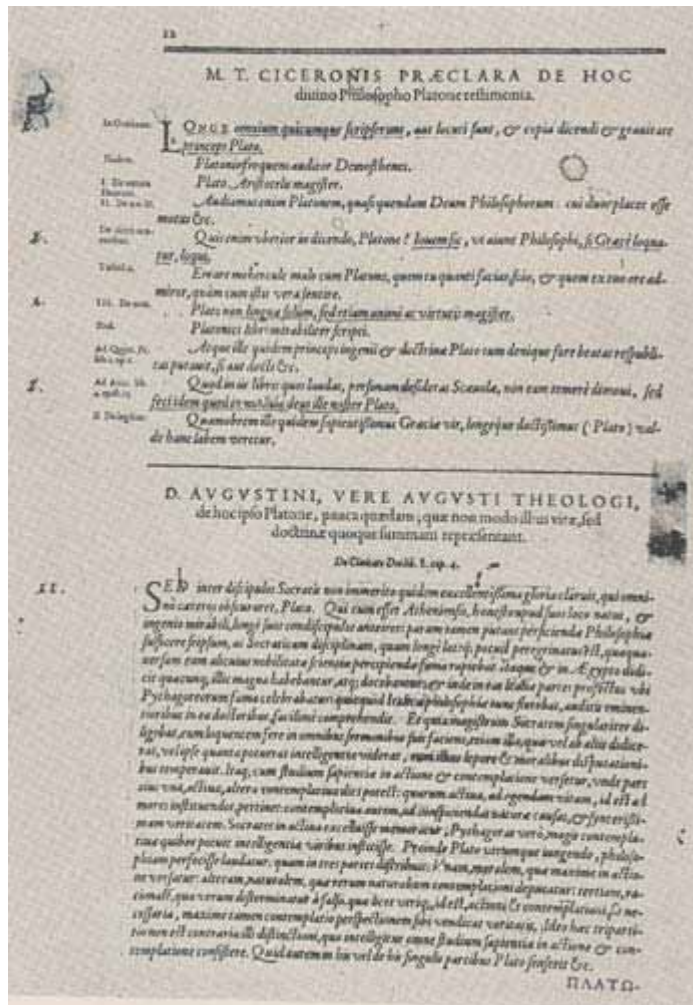 12
M. T. CICERONIS PRÆCLARA DE HOC
divino Philosopho Platone testimonia.
LONGE omnium quicumque scripserunt, aut locuti sunt, & copia dicendi & gravitate
princeps Plato.
Platonis frequens auditor Demosthenes.
Plato Aristotelis magister.
Audiamus enim Platonem, quasi quendam Deum Philosophorum: cui duo placet esse
motus &c.
Quis enim uberior in dicendo, Platone? Iovem sic, ut aiunt Philosophi, si Græcè loqua-
tur, loqui.
Errare mehercule malo cum Platone, quem tu quanti facias, scio, & quem ex tuo ore ad-
miror, quàm cum istis vera sentire.
Plato non linguæ solùm, sed etiam animi ac virtutis magister.
Platonis libri mirabiliter scripti.
Atque ille quidem princeps ingenii & doctrinæ Plato tum denique fore beatas respubli-
cas putavit, si aut docti &c.
Quod in iis libris quos laudas, personam desideras Scævolæ, non eam temerè dimovi, sed
feci idem quod in deus ille noster Plato.
Quamobrem ille quidem sapientissimus Græciæ vir, longéque doctissimus (Plato) val-
de hanc labem veretur.
D. AVGVSTINI, VERE AVGVSTI THEOLOGI,
de hoc ipso Platone, pauca quædam, quæ non modo illius vitæ, sed
doctrinæ quoque summam repræsentant.
De Civitate Dei lib. 8. cap. 4.
SED inter discipulos Socratis non immeritò quidem excellentissima gloria claruit, qui omni-
no cæteros obscuraret, Plato. Qui cum esset Atheniensis, honesto apud suos loco natus, &
ingenio mirabili, longè suos condiscipulos anteiret: parum tamen putans perficiendæ Philosophiæ
sufficere seipsum, ac Socraticam disciplinam, quàm longè latéq; potuit peregrinatus est, quaqua-
versum eum alicuius nobilitatæ scientiæ percipiendæ fama rapiebat. Itaque & in Ægypto didi-
cit quæcunq; illic magna habebantur, atq; docebantur; & inde in eas Italiæ partes profectus ubi
Pythagoreorum fama celebrabatur: quicquid Italicæ philosophiæ tunc florebat, auditis eminen-
tioribus in ea doctoribus, facilimè comprehendit. Et quia magistrum Socratem singulariter di-
ligebat, eum loquentem fere in omnibus sermonibus suis faciens, etiam illa, quæ vel ab aliis didice-
rat, vel ipse quanta potuerat intelligentia viderat, cum illius lepore & moralibus disputationi-
bus temperavit. Itaq; cum studium sapientiæ in actione & contemplatione versetur, unde pars
eius una, activa, altera contemplativa dici potest: quarum activa, ad agendam vitam, id est ad
mores instituendos, pertinet: contemplativa autem, ad conspiciendas naturæ causas, & synceriss-
mam veritatem. Socrates in activa excelluisse memoratur, Pythagoras verò, magis contempla-
tivæ quibus potuit intelligentiæ viribus institisse. Proinde Plato utrumque iungendo, philoso-
phiam perfecisse laudatur: quam in tres partes distribuit: Unam, moralem, quæ maxime in actio-
ne versatur: alteram, naturalem, quæ rerum naturalium contemplationi deputatur: tertiam, ra-
tionalē, qua verum disterminatur à falso. quæ licet utriq;, id est, actioni & contemplationi, sit ne-
cessaria, maxime tamen contemplatio perspectionem sibi vendicat veritatis. Ideo hæc triparti-
tio non est contraria illi distinctioni, qua intelligitur omne studium sapientiæ in actione & con-
templatione consistere. Quid autem in his vel de his singulis partibus Plato senserit &c.
ΠΛΑΤΩ-